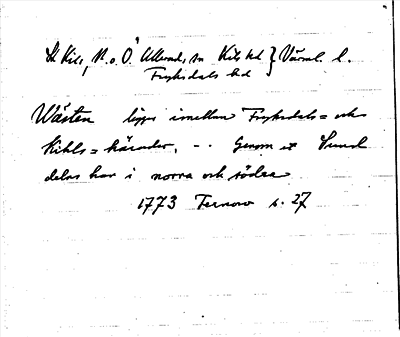 St Kil, N. o. Ö. Ullerud sn Kils hd } Värml. l.
Fryksdals hd
Wästen ligger imellan Fryksdals= och
Kihls= härader. - . Genom et Sund
delas han i norra och södra
1773 Fernow s. 27